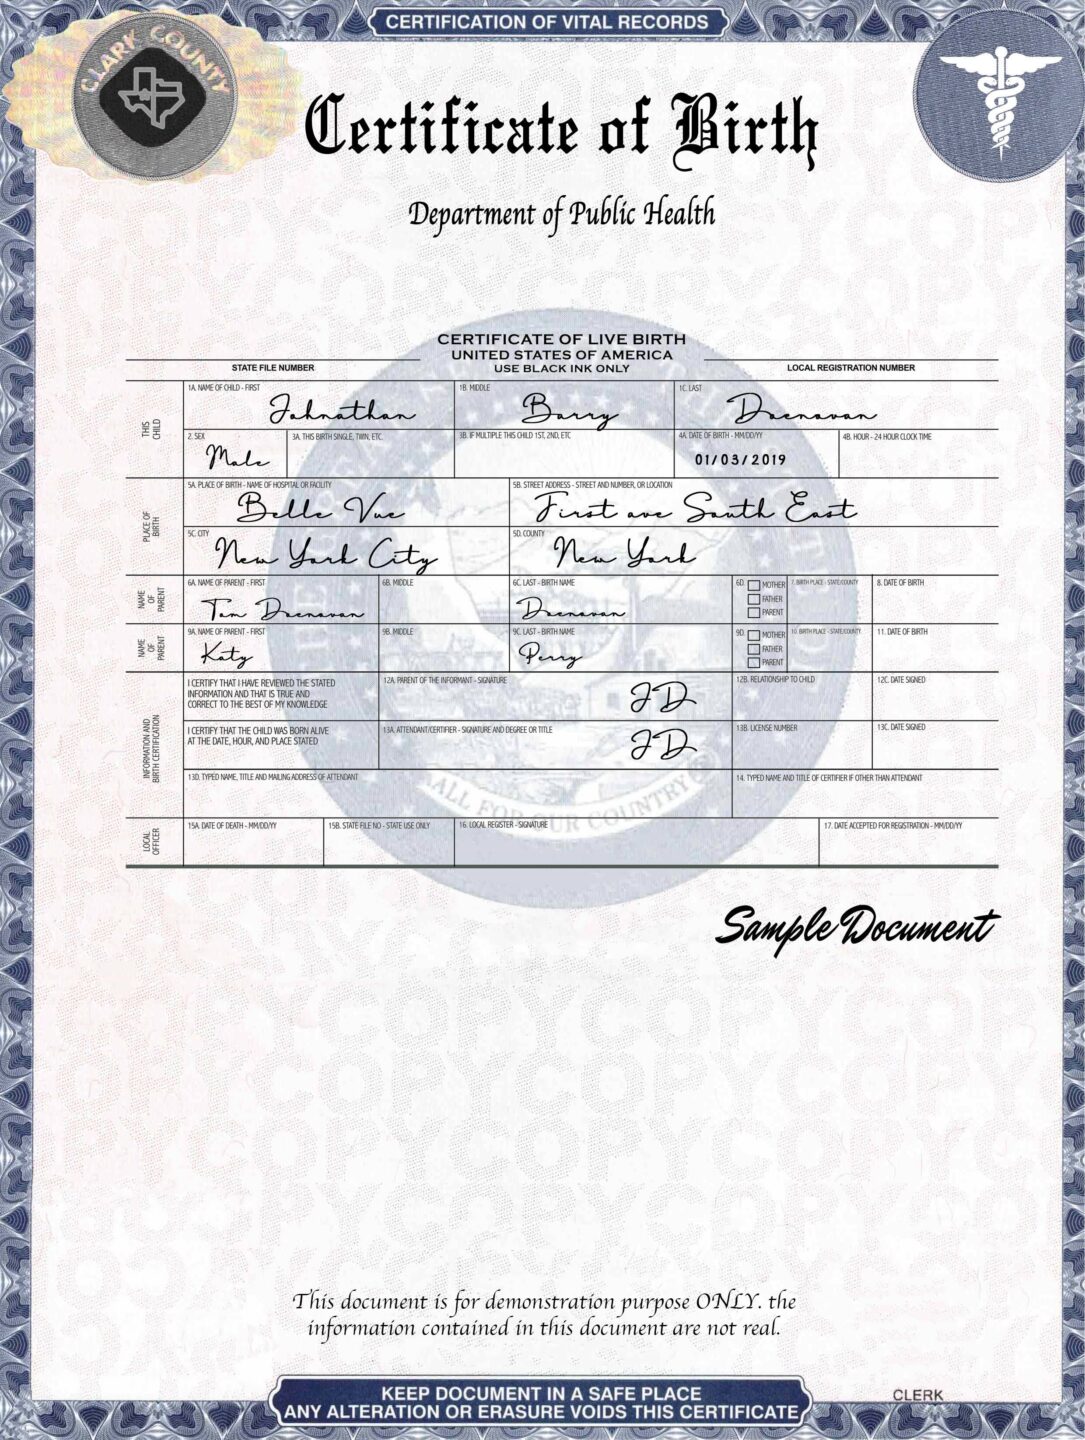 CERTIFICATION OF VITAL RECORDS
CLARK COUNTY
Certificate of Birth
Department of Public Health
CERTIFICATE OF LIVE BIRTH
UNITED STATES OF AMERICA
STATE FILE NUMBER USE BLACK INK ONLY LOCAL REGISTRATION NUMBER
THIS CHILD
1A. NAME OF CHILD - FIRST 1B. MIDDLE 1C. LAST
Johnathan Barry Doenovan
2. SEX 3A. THIS BIRTH SINGLE, TWIN, ETC. 3B. IF MULTIPLE THIS CHILD 1ST, 2ND, ETC 4A. DATE OF BIRTH - MM/DD/YY 4B. HOUR - 24 HOUR CLOCK TIME
Male 01/03/2019
PLACE OF BIRTH
5A. PLACE OF BIRTH - NAME OF HOSPITAL OR FACILITY 5B. STREET ADDRESS - STREET AND NUMBER, OR LOCATION
Belle Vue First ave South East
5C. CITY 5D. COUNTY
New York City New York
NAME OF PARENT
6A. NAME OF PARENT - FIRST 6B. MIDDLE 6C. LAST - BIRTH NAME 6D. MOTHER FATHER PARENT 7. BIRTH PLACE - STATE/COUNTY 8. DATE OF BIRTH
Tom Doenovan Doenovan
NAME OF PARENT
9A. NAME OF PARENT - FIRST 9B. MIDDLE 9C. LAST - BIRTH NAME 9D. MOTHER FATHER PARENT 10. BIRTH PLACE - STATE/COUNTY 11. DATE OF BIRTH
Katy Perry
INFORMATION AND BIRTH CERTIFICATION
I CERTIFY THAT I HAVE REVIEWED THE STATED
INFORMATION AND THAT IS TRUE AND
CORRECT TO THE BEST OF MY KNOWLEDGE
12A. PARENT OF THE INFORMANT - SIGNATURE 12B. RELATIONSHIP TO CHILD 12C. DATE SIGNED
JD
I CERTIFY THAT THE CHILD WAS BORN ALIVE
AT THE DATE, HOUR, AND PLACE STATED
13A. ATTENDANT/CERTIFIER - SIGNATURE AND DEGREE OR TITLE 13B. LICENSE NUMBER 13C. DATE SIGNED
JD
13D. TYPED NAME, TITLE AND MAILING ADDRESS OF ATTENDANT 14. TYPED NAME AND TITLE OF CERTIFIER IF OTHER THAN ATTENDANT
ALL FOR OUR COUNTRY
LOCAL OFFICER
15A. DATE OF DEATH - MM/DD/YY 15B. STATE FILE NO - STATE USE ONLY 16. LOCAL REGISTER - SIGNATURE 17. DATE ACCEPTED FOR REGISTRATION - MM/DD/YY
Sample Document
This document is for demonstration purpose ONLY. the
information contained in this document are not real.
CLERK
KEEP DOCUMENT IN A SAFE PLACE
ANY ALTERATION OR ERASURE VOIDS THIS CERTIFICATE